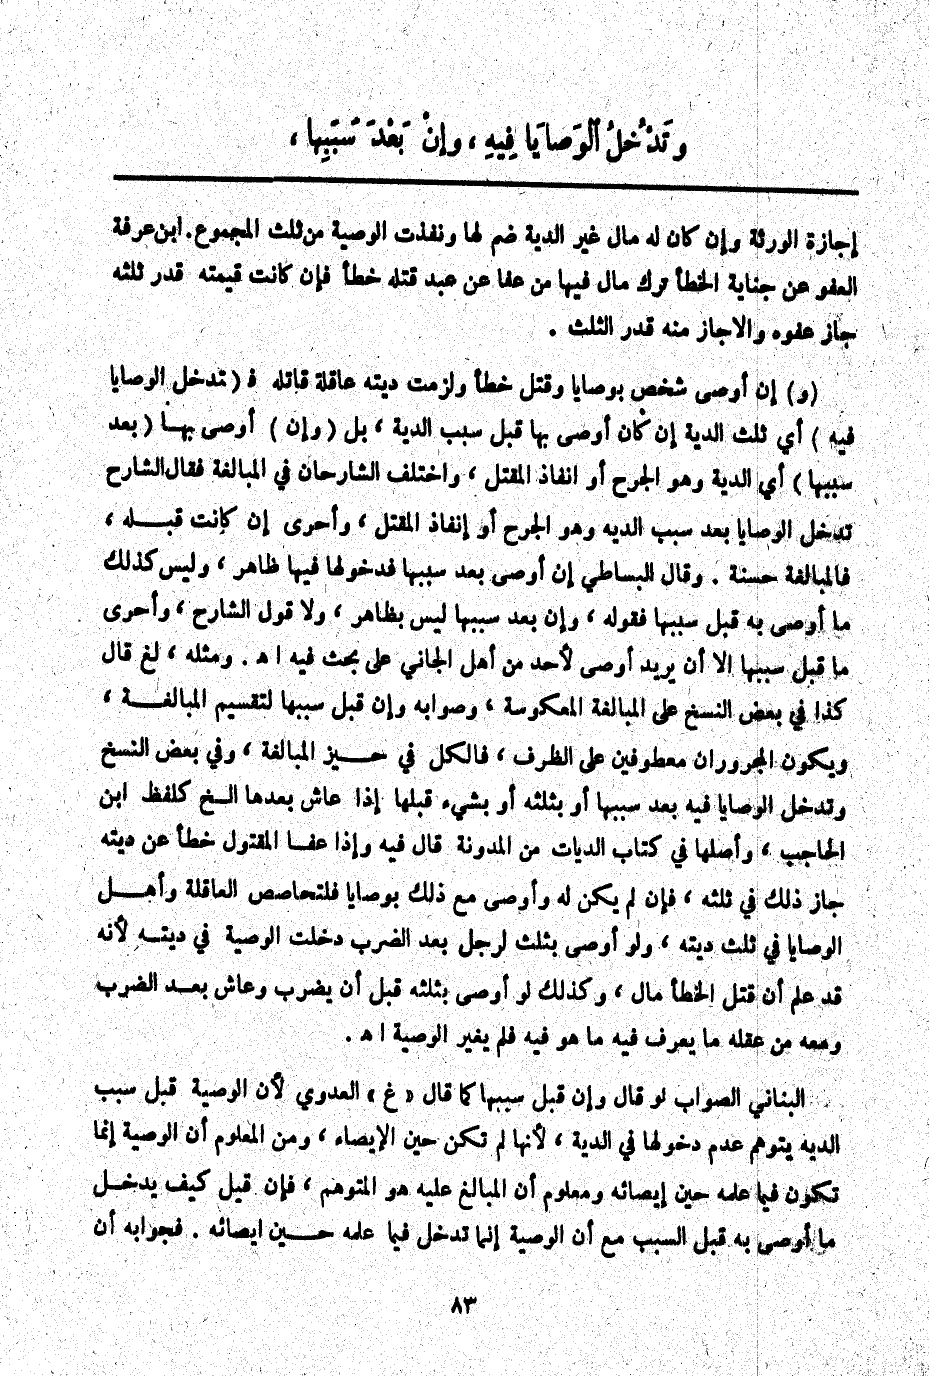 وَتَدْخُلُ ٱلْوَصَايَا فِيهِ ، وإنْ بَعْدَ سَبَبِها ،
إجازة الورثة وإن كان له مال غير الدية ضم لها ونفذت الوصية من ثلث المجموع . ابن عرفة
العفو عن جناية الخطأ ترك مال فيها من عفا عن عبد قتله خطأ فإن كانت قيمته قدر ثلثه
جاز عفوه والاجاز منه قدر الثلث .
(و) إن أوصى شخص بوصايا وقتل خطأ ولزمت ديته عاقلة قاتله فـ ( تدخل الوصايا
فيه ) أي ثلث الدية إن كان أوصى بها قبل سبب الدية ، بل ( وإن ) أوصى بهـا ( بعد
سببها ) أي الدية وهو الجرح أو انفاذ المقتل ، واختلف الشارحان في المبالغة فقال الشارح
تدخل الوصايا بعد سبب الديه وهو الجرح أو إنفاذ المقتل ، وأحرى إن كانت قبـــله ،
فالمبالغة حسنة . وقال البساطي إن أوصى بعد سببها فدخولها فيها ظاهر ، وليس كذلك
ما أوصى به قبل سببها فقوله ، وإن بعد سببها ليس بظاهر ، ولا قول الشارح ، وأحرى
ما قبل سببها الا أن يريد أوصى لأحد من أهل الجاني على بحث فيه ا هـ . ومثله ، لغ قال
كذا في بعض النسخ على المبالغة المعكوسة ، وصوابه وإن قبل سببها لتقسيم المبالغـــة ،
ويكون المجروران معطوفين على الظرف ، فالكل في حـــيز المبالغة ، وفي بعض النسخ
وتدخل الوصايا فيه بعد سببها أو بثلثه أو بشيء قبلها إذا عاش بعدها الــخ كلفظ ابن
الحاجب ، وأصلها في كتاب الديات من المدونة قال فيه وإذا عفــا المقتول خطأ عن ديته
جاز ذلك في ثلثه ، فإن لم يكن له وأوصى مع ذلك بوصايا فلتحاصص العاقلة وأهـــل
الوصايا في ثلث ديته ، ولو أوصى بثلث لرجل بعد الضرب دخلت الوصية في ديتــه لأنه
قد علم أن قتل الخطأ مال ، وكذلك لو أوصى بثلثه قبل أن يضرب وعاش بعــد الضرب
ومعه من عقله ما يعرف فيه ما هو فيه فلم يغير الوصية ا هـ .
البناني الصواب لو قال وإن قبل سببها كما قال « غ » العدوي لأن الوصية قبل سبب
الديه يتوهم عدم دخولها في الدية ، لأنها لم تكن حين الإيصاء ، ومن المعلوم أن الوصية إنما
تكون فيما علمه حين إيصائه ومعلوم أن المبالغ عليه هو المتوهم ، فإن قيل كيف يدخــل
ما أوصى به قبل السبب مع أن الوصية إنما تدخل فيما علمه حـــين ايصائه . فجوابه أن
٨٣